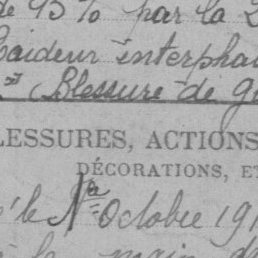 de 95% par la
Raideur interpha
Blessure de G
LESSURES, ACTIONS
DÉCORATIONS, E
le 1er Octobre 191
la main d